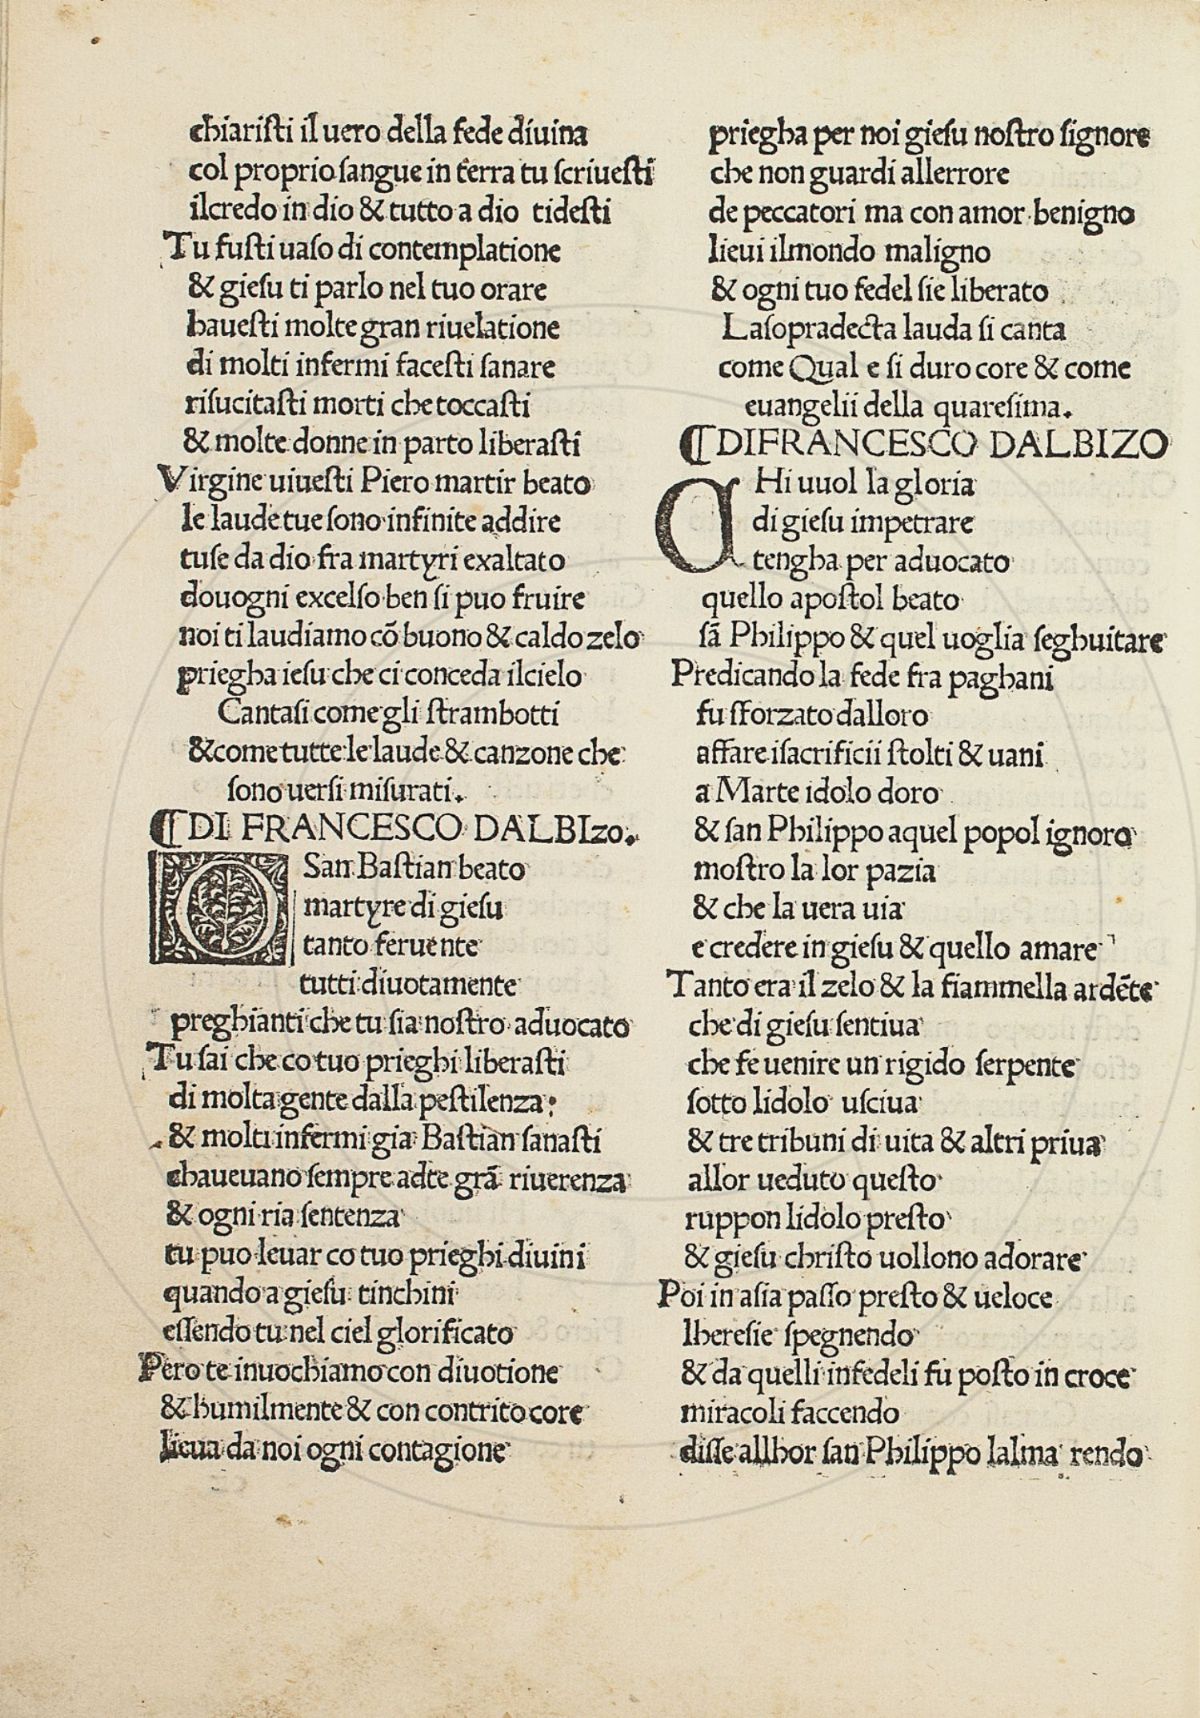 chiariſti il uero della fede diuina
col proprio ſangue in terra tu ſcriueſti
ilcredo in dio & tutto a dio tideſti
Tu fuſti uaſo di contemplatione
& gieſu ti parlo nel tuo orare
haueſti molte gran riuelatione
di molti infermi faceſti ſanare
riſucitaſti morti che toccaſti
& molte donne in parto liberaſti
Virgine uiueſti Piero martir beato
le laude tue ſono infinite addire
tuſe da dio fra martyri exaltato
douogni excelſo ben ſi puo fruire
noi ti laudiamo cõ buono & caldo zelo
priegha ieſu che ci conceda ilcielo
Cantaſi come gli ſtrambotti
& come tutte le laude & canzone che
ſono uerſi miſurati.
⁋ DI FRANCESCO DALBIzo.
O San Baſtian beato
martyre di gieſu
tanto feruente
tutti diuotamente
preghianti che tu ſia noſtro aduocato
Tu ſai che co tuo prieghi liberaſti
di molta gente dalla peſtilenza:
& molti infermi gia Baſtian ſanaſti
chaueuano ſempre adte grã riuerenza
& ogni ria ſentenza
tu puo leuar co tuo prieghi diuini
quando a gieſu tinchini
eſſendo tu nel ciel glorificato
Pero te inuochiamo con diuotione
& humilmente & con contrito core
lieua da noi ogni contagione
priegha per noi gieſu noſtro ſignore
che non guardi allerrore
de peccatori ma con amor benigno
lieui ilmondo maligno
& ogni tuo fedel ſie liberato
Laſopradecta lauda ſi canta
come Qual e ſi duro core & come
euangelii della quareſima.
⁋ DIFRANCESCO DALBIZO
CHi uuol la gloria
di gieſu impetrare
tengha per aduocato
quello apoſtol beato
ſã Philippo & quel uoglia ſeghuitare
Predicando la fede fra paghani
fu sforzato dalloro
affare iſacrificii ſtolti & uani
a Marte idolo doro
& ſan Philippo aquel popol ignoro
moſtro la lor pazia
& che la uera uia
e credere in gieſu & quello amare
Tanto era il zelo & la fiammella ardẽte
che di gieſu ſentiua
che fe uenire un rigido ſerpente
ſotto lidolo uſciua
& tre tribuni di uita & altri priua
allor ueduto queſto
ruppon lidolo preſto
& gieſu chriſto uollono adorare
Poi in aſia paſſo preſto & ueloce
lhereſie ſpegnendo
& da quelli infedeli fu poſto in croce
miracoli faccendo
diſſe allhor ſan Philippo lalma rendo